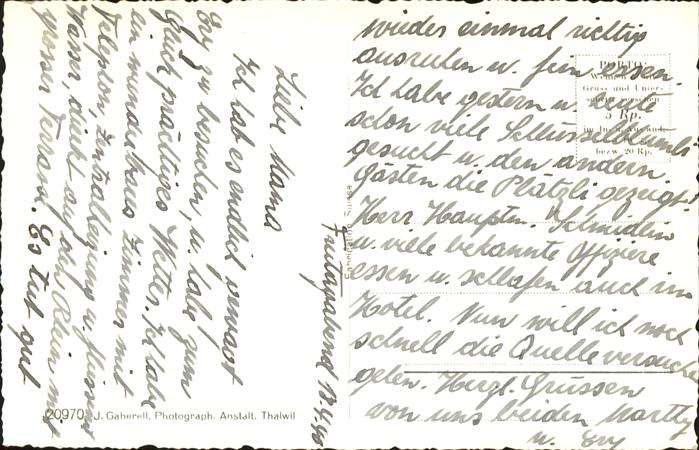 Freitagabend 13.4.
Liebe Mama
Ich hab es endlich gewagt
Ery zu besuchen, u. habe zum
Glück prächtiges Wetter. Ich habe
ein wunderbares Zimmer mit
Telephon, Zentralheizung u. fliessend
Wasser, direkt auf den Rhein mit
grosser Terrasse. Es tut gut
wieder einmal richtig
ausruhen u. fein essen.
Ich habe gestern u. heute
schon viele Schlüsselblümli
gesucht u. den andern
Gästen die Plätzli gezeigt.
Herr Hauptm. Schmidlin
u. viele bekannte Offiziere
essen u. schlafen auch im
Hotel. Nun will ich noch
schnell die Quelle versuchen
gehen. Herzl. Grüssen
von uns beiden Marthy
u. Ery
PORTO:
Gruss und Unter-
5 Rp.
bezw. 20 Rp.
Fabrication Suisse
20970 J. Gaberell, Photograph. Anstalt, Thalwil